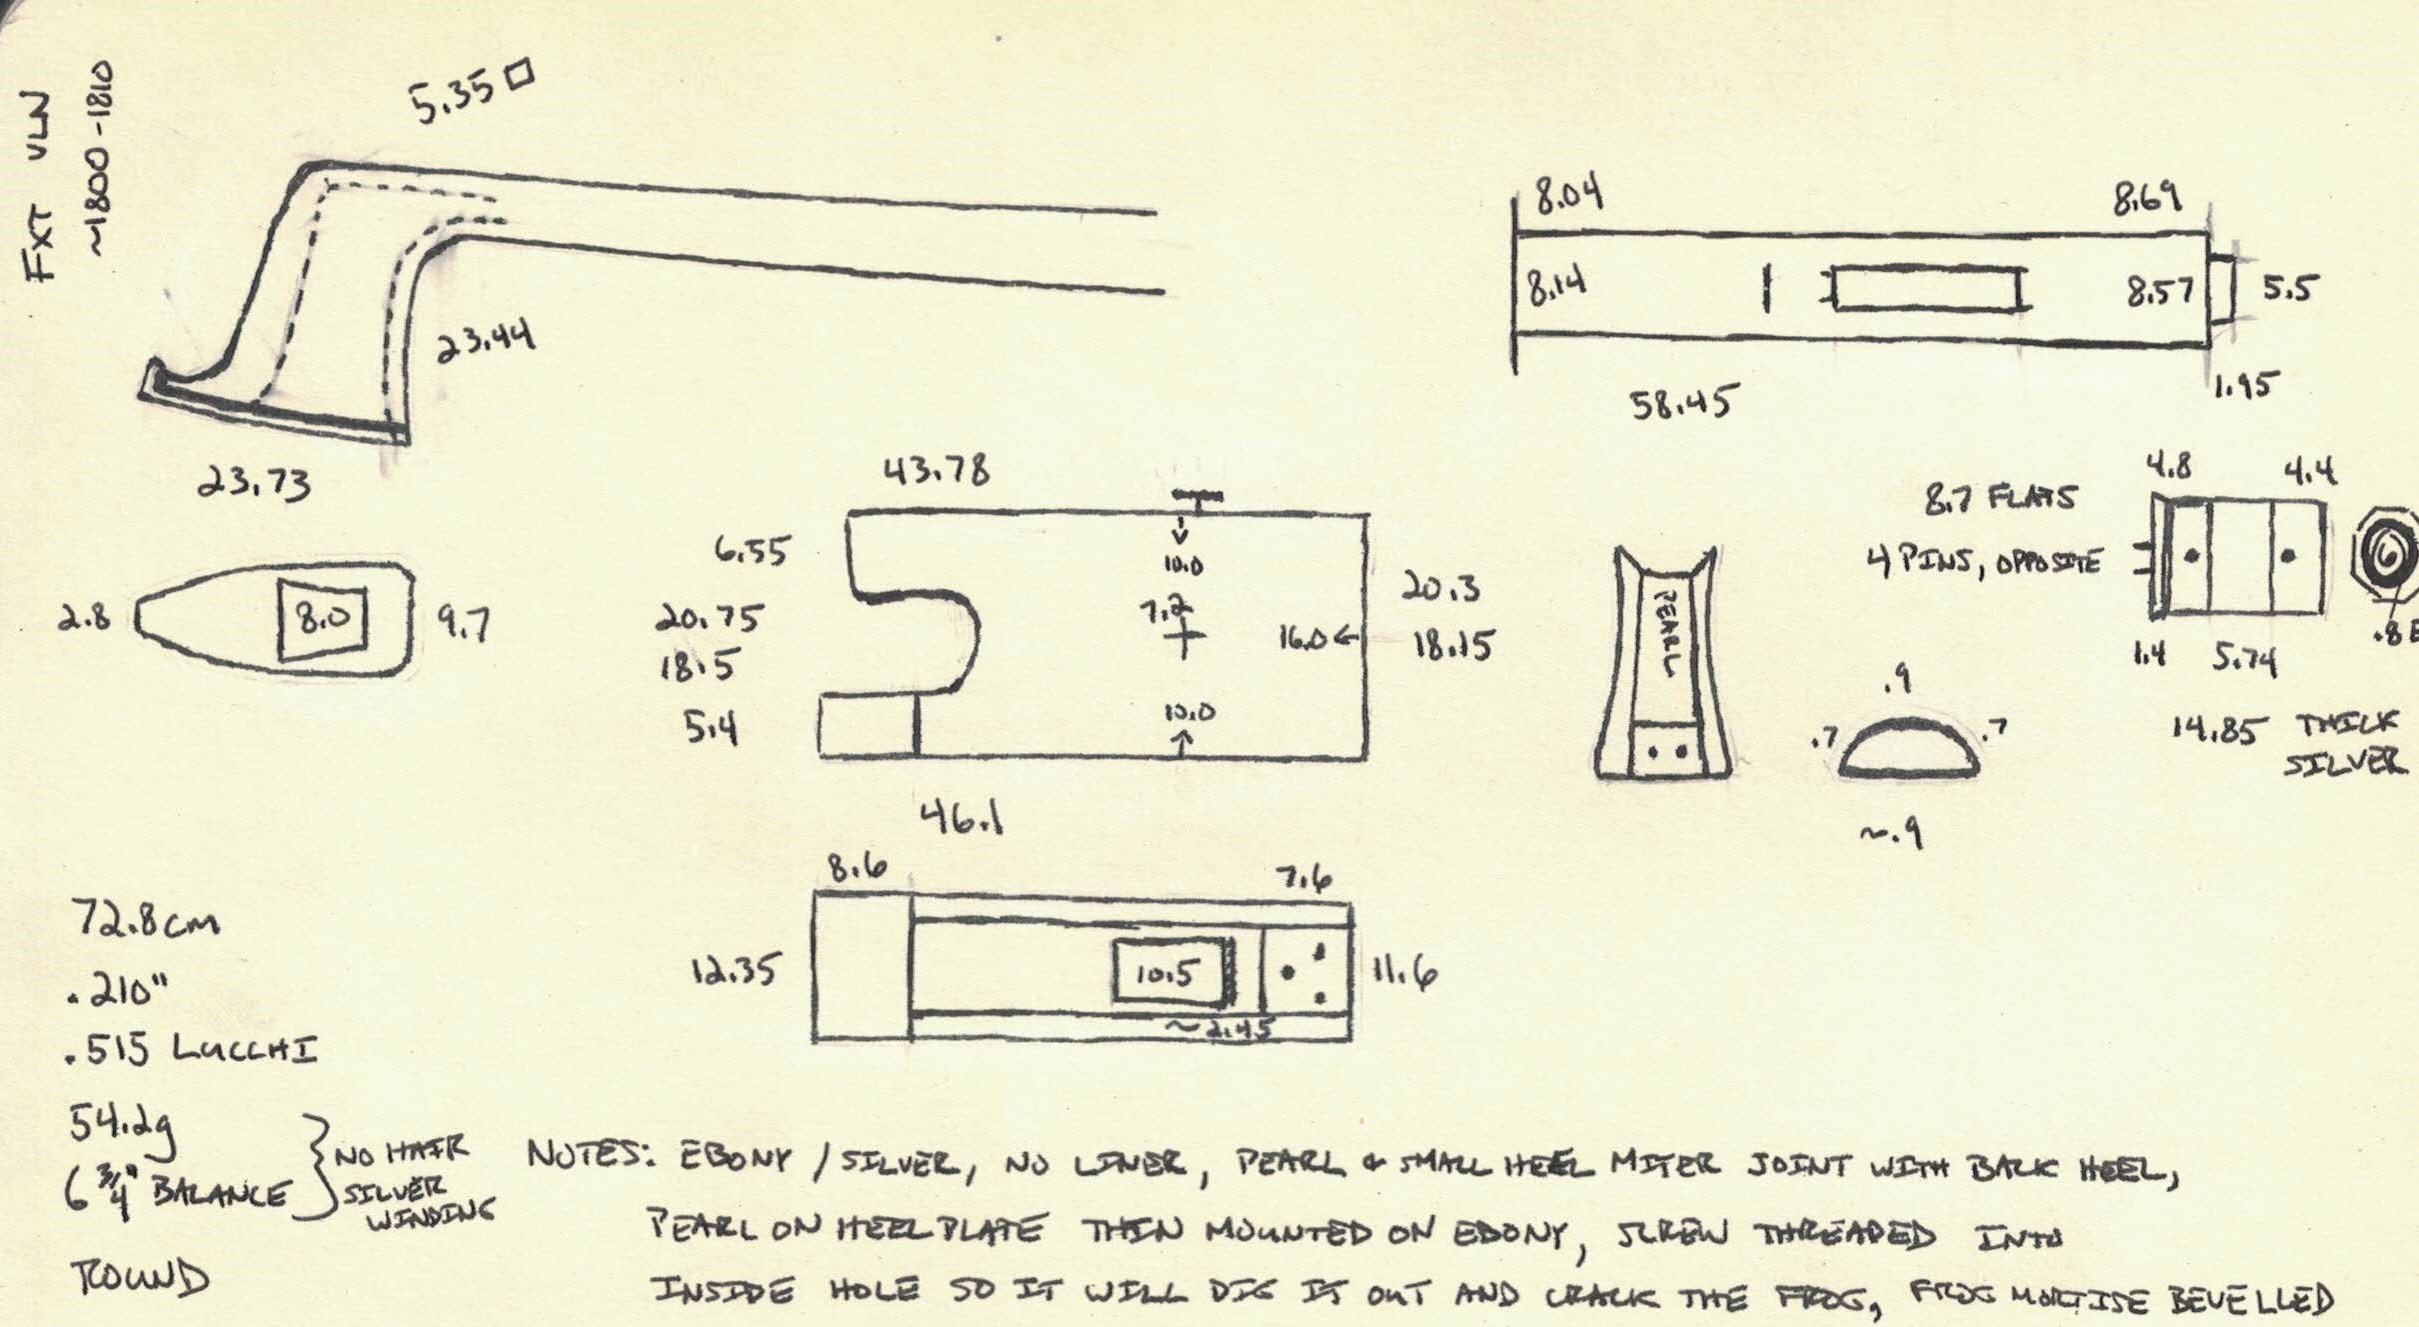 FXT VLN
~1800-1810
5.35 □
23.44
23.73
2.8
8.0
9.7
8.04
8.69
8.14
8.57
5.5
58.45
1.95
43.78
6.55
20.75
18.5
5.4
10.0
7.2
16.0 ←
10.0
20.3
18.15
46.1
PEARL
.9
.7
.7
~.9
8.7 FLATS
4 PINS, OPPOSITE
4.8
4.4
1.4
5.74
.8
14.85 THICK
SILVER
8.6
7.6
12.35
10.5
~2.45
11.6
72.8cm
.210"
.515 LUCCHI
54.2g
6 3/4" BALANCE
NO HAIR
SILVER
WINDING
ROUND
NOTES: EBONY / SILVER, NO LINER, PEARL & SMALL HEEL MITER JOINT WITH BACK HEEL,
PEARL ON HEELPLATE THIN MOUNTED ON EBONY, SCREW THREADED INTO
INSIDE HOLE SO IT WILL DIG IT OUT AND CRACK THE FROG, FROG MORTISE BEVELLED